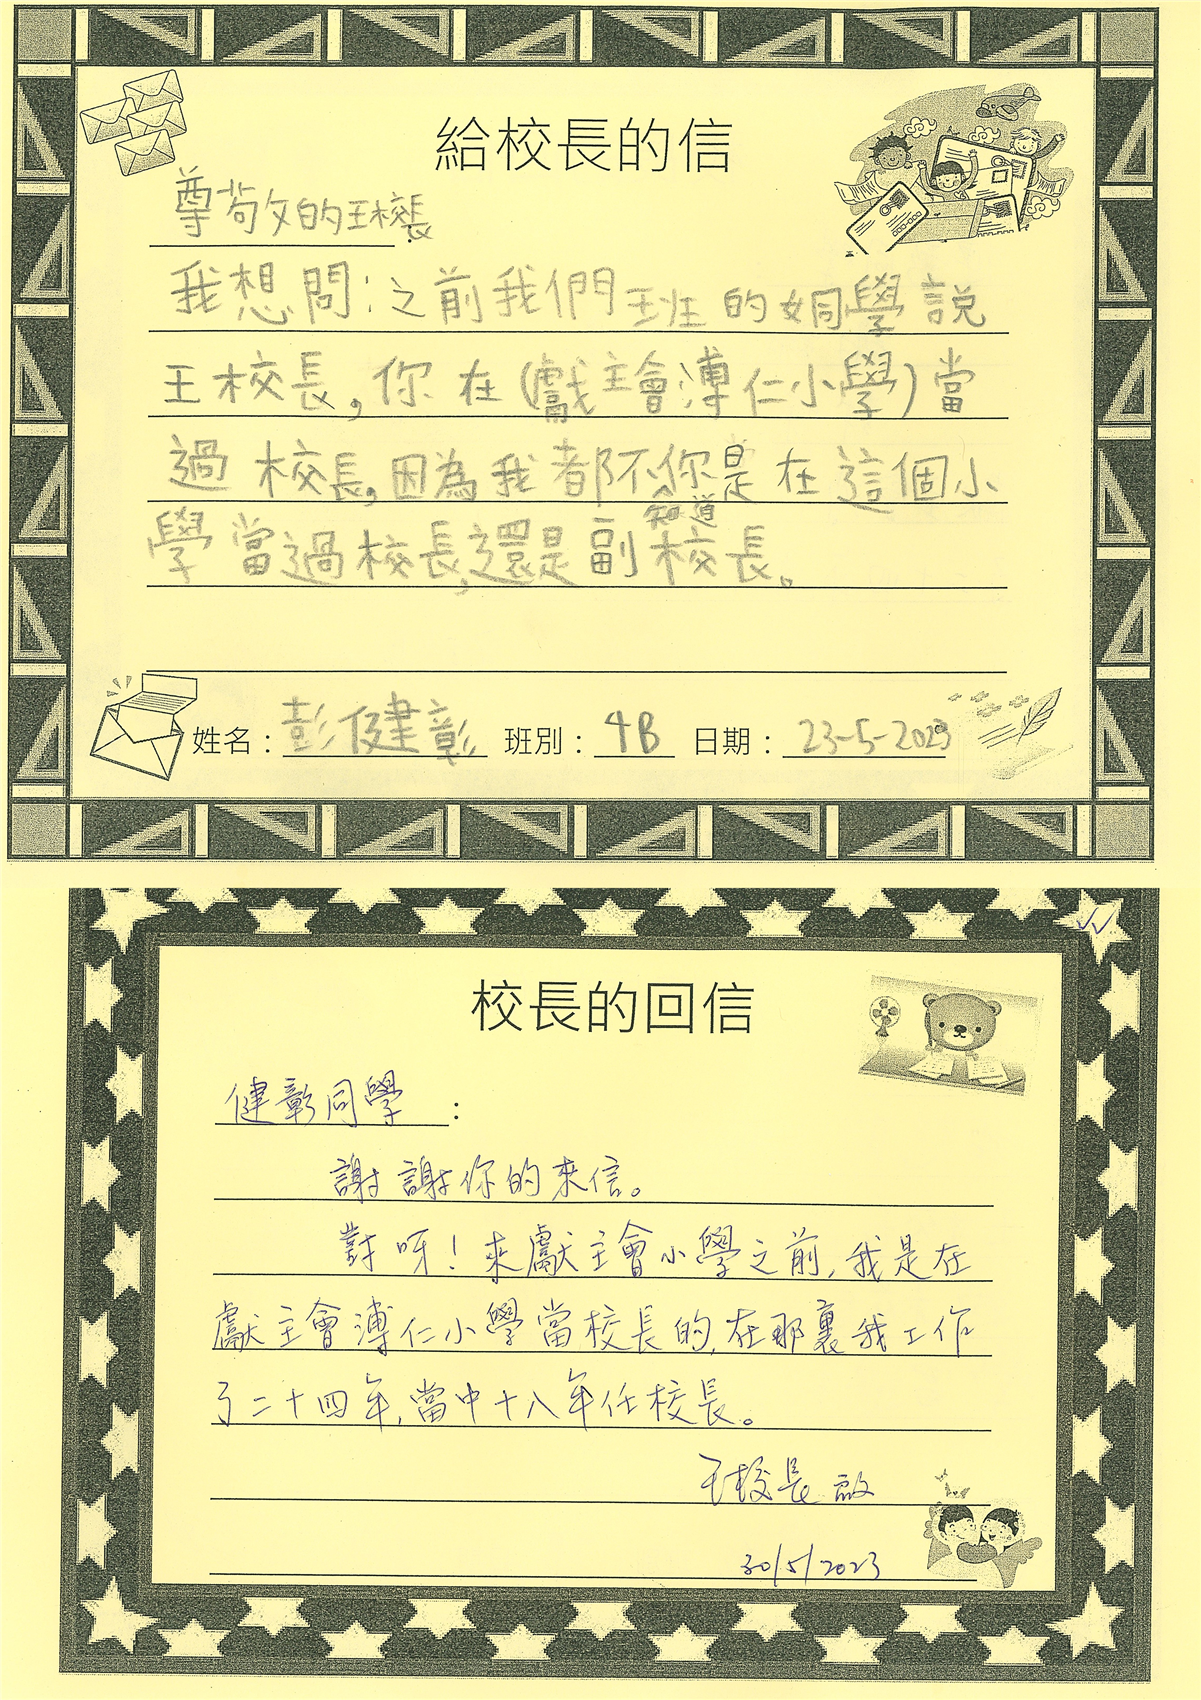 給校長的信
尊敬的王校長
:
我想問:之前我們班的同學説
王校長,你在(獻主會溥仁小學)當
過校長,因為我都不你是在這個小
知道
學當過校長,還是副校長。
姓名:彭健彰 班別:4B 日期:23-5-2023
校長的回信
健彰同學:
謝謝你的來信。
對呀!來獻主會小學之前,我是在
獻主會溥仁小學當校長的,在那裏我工作
了二十四年,當中十八年任校長。
王校長 啟
30/5/2023